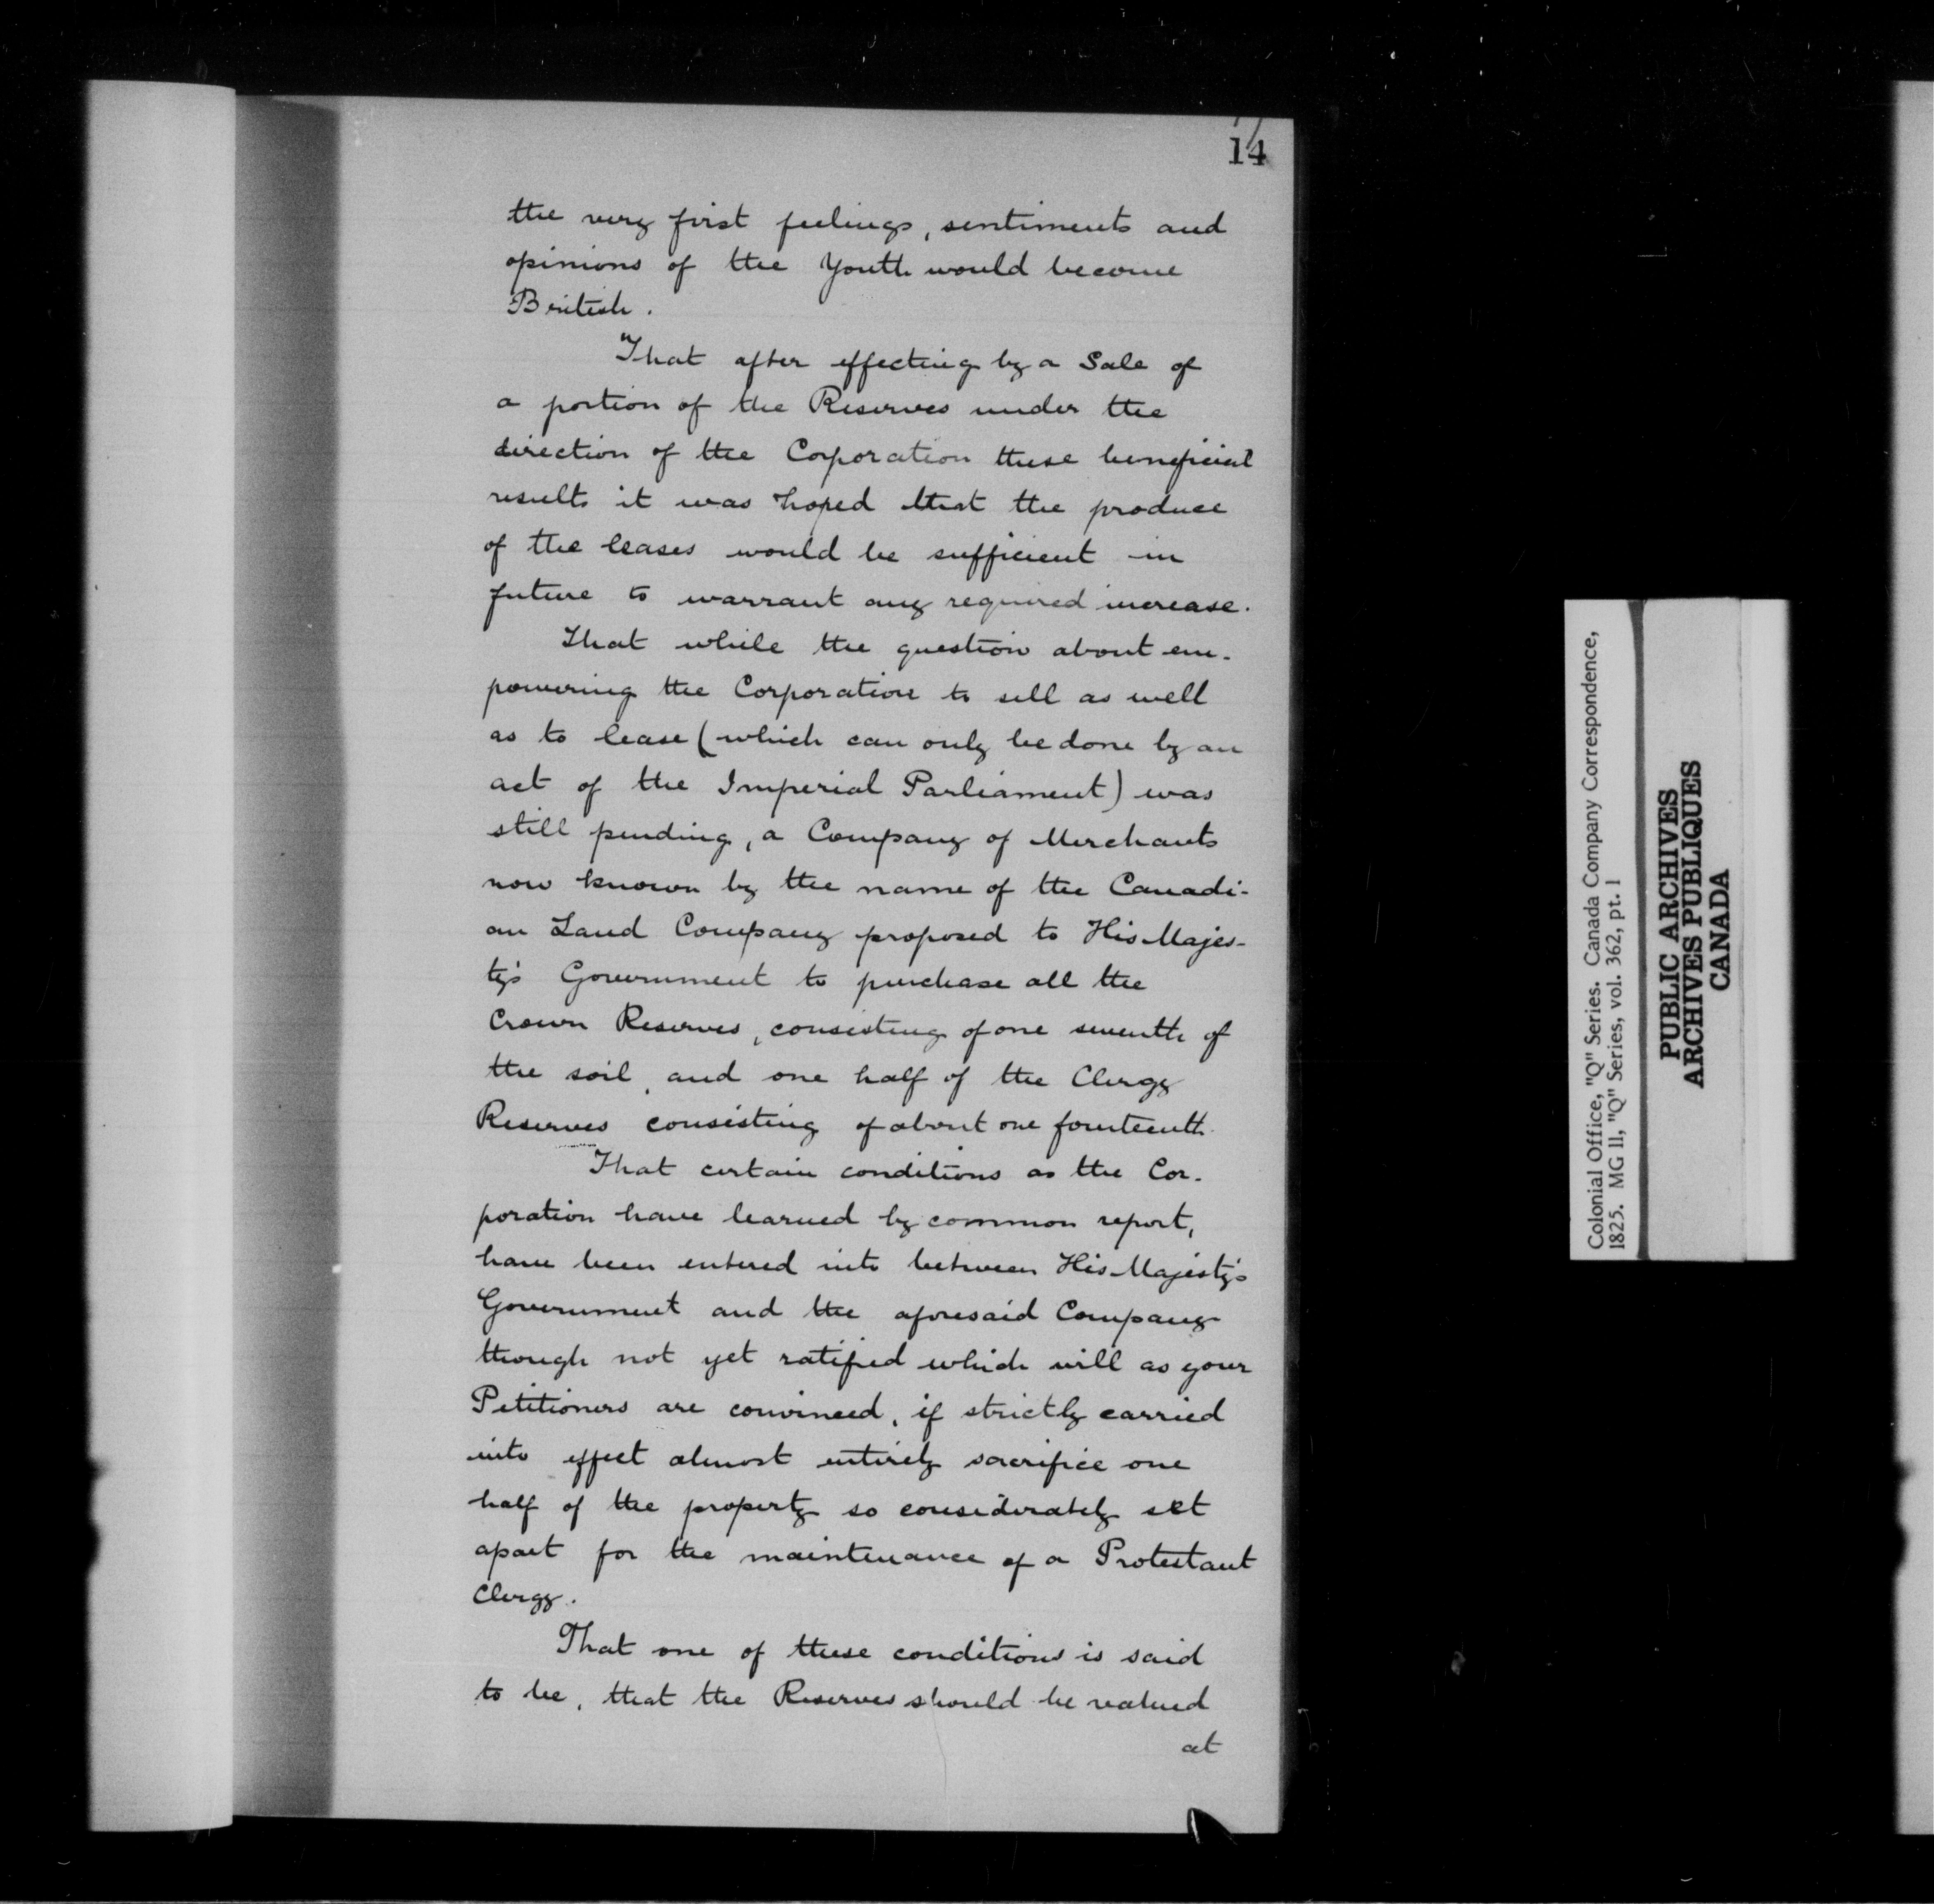 14
the very first feelings, sentiments and
opinions of the Youth would become
British.
That after effecting by a Sale of
a portion of the Reserves under the
direction of the Corporation these beneficial
results it was hoped that the produce
of the leases would be sufficient in
future to warrant any required increase.
That while the question about em-
powering the Corporation to sell as well
as to lease (which can only be done by an
act of the Imperial Parliament) was
still pending, a Company of Merchants
now known by the name of the Canadi-
an Land Company proposed to His Majes-
ty's Government to purchase all the
Crown Reserves, consisting of one seventh of
the soil, and one half of the Clergy
Reserves consisting of about one fourteenth.
That certain conditions as the Cor-
poration have learned by common report,
have been entered into between His Majesty's
Government and the aforesaid Company
though not yet ratified which will as your
Petitioners are convinced, if strictly carried
into effect almost entirely sacrifice one
half of the property so considerately set
apart for the maintenance of a Protestant
Clergy.
That one of these conditions is said
to be, that the Reserves should be valued
at
Colonial Office, "Q" Series. Canada Company Correspondence,
1825. MG 11, "Q" Series, vol. 362, pt. 1
PUBLIC ARCHIVES
ARCHIVES PUBLIQUES
CANADA